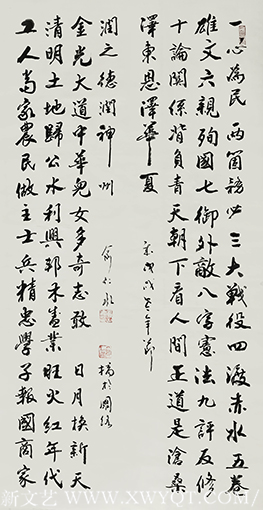 一心為民两箇務必三大戰役四渡赤水五卷
雄文六親殉國七御外敵八字憲法九評反修
十論關係背負青天朝下看人間正道是滄桑
澤東恩澤華夏
戊戌
工人當家農民做主士兵精忠學子報國商家
清明土地歸公水利興邦業旺火紅年代
金光大道中華兒女多奇志敢日月換新天
潤之德潤神州
新文艺 WWW.XWYQT.COM